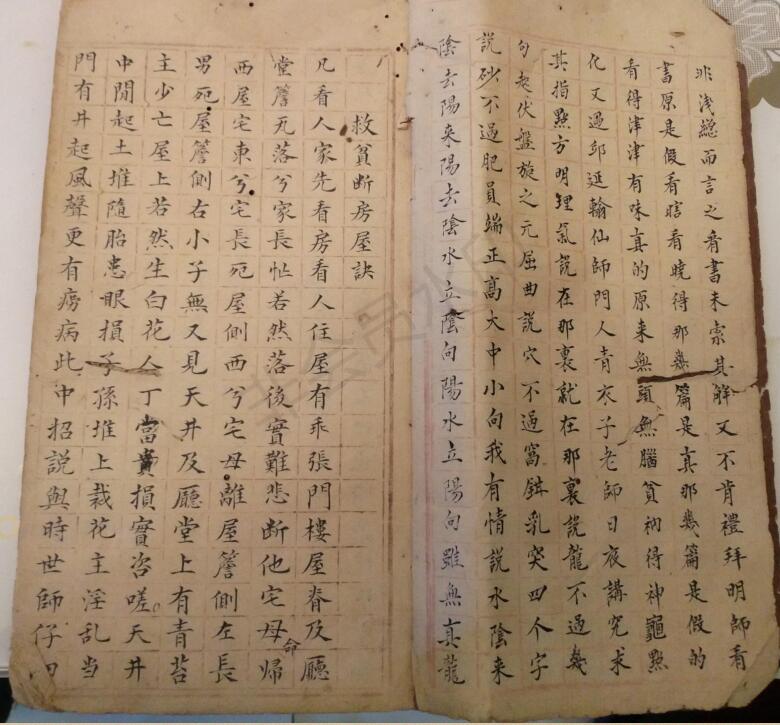 非浅總而言之看書未索其解又不肯禮拜明師看
書原是假看瞎看曉得那幾篇是真那幾篇是假的
看得津津有味真的原来無頭無腦貧衲得神龜點
化又遇邱延翰仙師門人青衣子老師日夜講究求
其指點方明理氣説在那裏就在那裏説龍不過幾
句起伏盤旋之元屈曲説穴不過窩鉗乳突四个字
説砂不過肥員端正高大中小向我有情説水陰来
陰去陽来陽去陰水立陰向陽水立陽向雖無真龍
救貧断房屋訣
凡看人家先看房看人住屋有乖張門樓屋脊及廳
堂簷无落兮家長怔若然落後實難悲断他宅母命歸
西屋宅東兮宅長宛屋側西兮宅母離屋簷側左長
男宛屋簷側右小子無又見天井及廳堂上有青苔
主少亡屋上若然生白花人丁當貴損實咨嗟天井
中閒起土堆隨胎患眼損子孫堆上栽花主淫乱当
門有井起風聲更有癆病此中招説與時世師仔